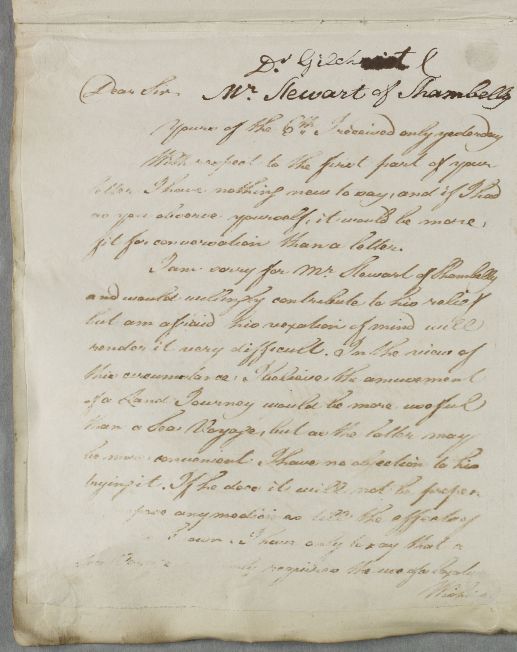 Dr Gilchrist
Dear Sir Mr. Stewart of Shambelly
Yours of the 6th. I received only yesterday
With respect to the first part of your
letter I have nothing new to say, and if I had
as you observe yourself, it would be more
fit for conversation than a letter.
I am sorry for Mr. Stewart of Shambelly
and would willingly contribute to his relief
but am afraid his vexation of mind will
render it very difficult. In the view of
this circumstance, I believe the amusement
of a Land Journey would be more useful
than a Sea Voyage, but as the latter may
be more convenient I have no objection to his
trying it. If he does it will not be proper
any medicines till the effects of
I have only to say that a
requires the use of